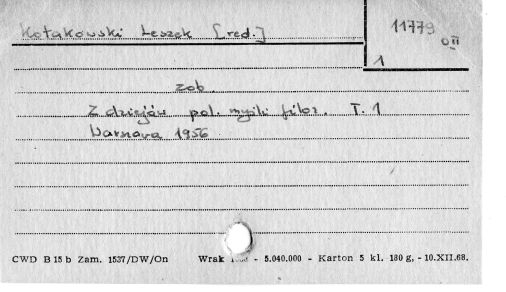 Kołakowski Leszek [red.]
11779
O II
1
zob.
Z dziejów pol. myśli filoz. T. 1
Warszawa 1956
CWD B 15 b Zam. 1537/DW/On Wrak - 5.040.000 - Karton 5 kl. 180 g, - 10.XII.68.